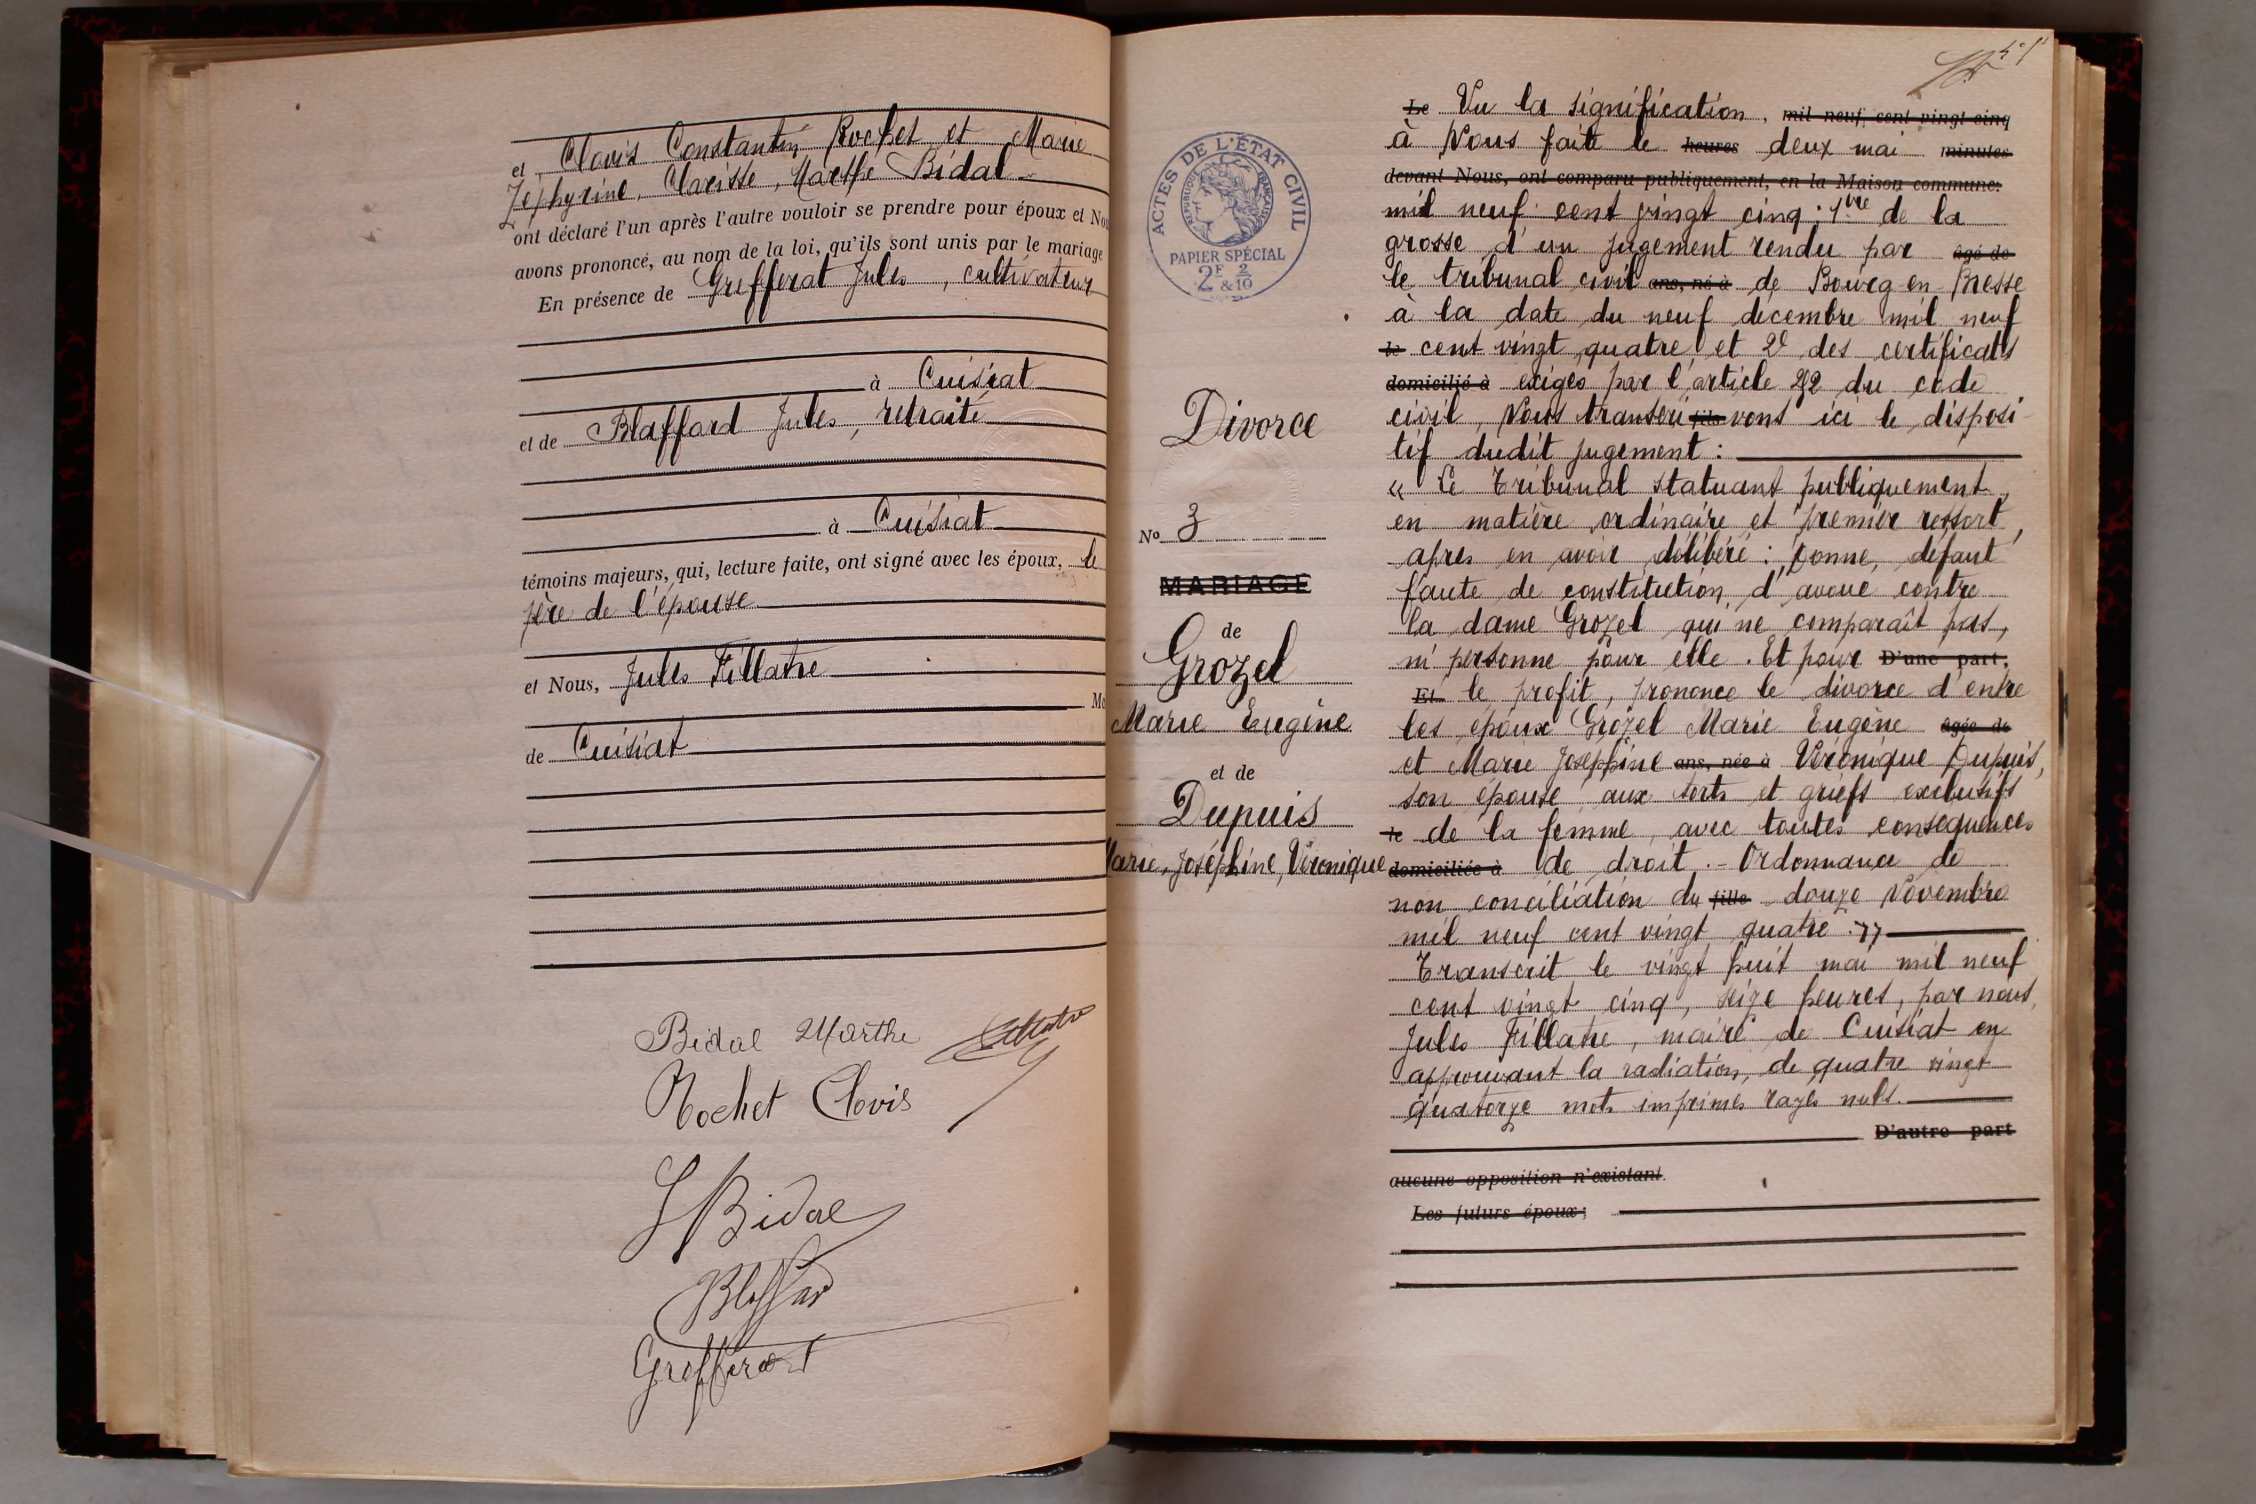 et Clovis Constantin Rochet et Marie
Zéphyrine, Clarisse, Marthe Bidal
ont déclaré l'un après l'autre vouloir se prendre pour époux et Nou
avons prononcé, au nom de la loi, qu'ils sont unis par le mariage
En présence de Grefferat Jules, cultivateur
à Cuisiat
et de Blaffard Jules, retraité
à Cuisiat
témoins majeurs, qui, lecture faite, ont signé avec les époux, le
père de l'épouse
et Nous, Jules Fillatre
Ma
de Cuisiat
Bidal Marthe
Rochet Clovis
J Bidal
Blaffard
Grefferat
ACTES DE L'ÉTAT CIVIL
RÉPUBLIQUE FRANÇAISE
PAPIER SPÉCIAL
2F & 2/10
Divorce
No 3
MARIAGE
de
Grozel
Marie Eugène
et de
Dupuis
Marie, Joséphine, Véronique
Le Vu la signification, mil neuf cent vingt-cinq
à Nous faite le heures deux mai minutes
devant Nous, ont comparu publiquement, en la Maison commune:
mil neuf cent vingt cinq: 1ere de la
grosse d'un jugement rendu par âgé de
le tribunal civil ans, né à de Bourg en Bresse
à la date du neuf decembre mil neuf
le cent vingt quatre et 2e des certificats
domicilié à exigés par l'article 252 du code
civil, Nous transcri fils vons ici le disposi
tif dudit jugement :
« Le Tribunal statuant publiquement,
en matière ordinaire et premier ressort,
apres en avoir délibéré : Donne défaut
faute de constitution d'avoué contre
la dame Grozel qui ne comparaît pas,
ni personne pour elle. Et pour D'une part,
Et le profit, prononce le divorce d'entre
les époux Grozel Marie Eugène âgée de
et Marie Joséphine ans, née à Véronique Dupuis,
son épouse aux torts et griefs exclusifs
le de la femme, avec toutes conséquences
domiciliée à de droit. - Ordonnance de
non conciliation du fille douze Novembre
mil neuf cent vingt quatre. »
Transcrit le vingt huit mai mil neuf
cent vingt cinq, seize heures, par nous,
Jules Fillatre, maire de Cuisiat en
approuvant la radiation, de quatre vingt
quatorze mots imprimés rayés nuls.
D'autre part
aucune opposition n'existant.
Les futurs époux;